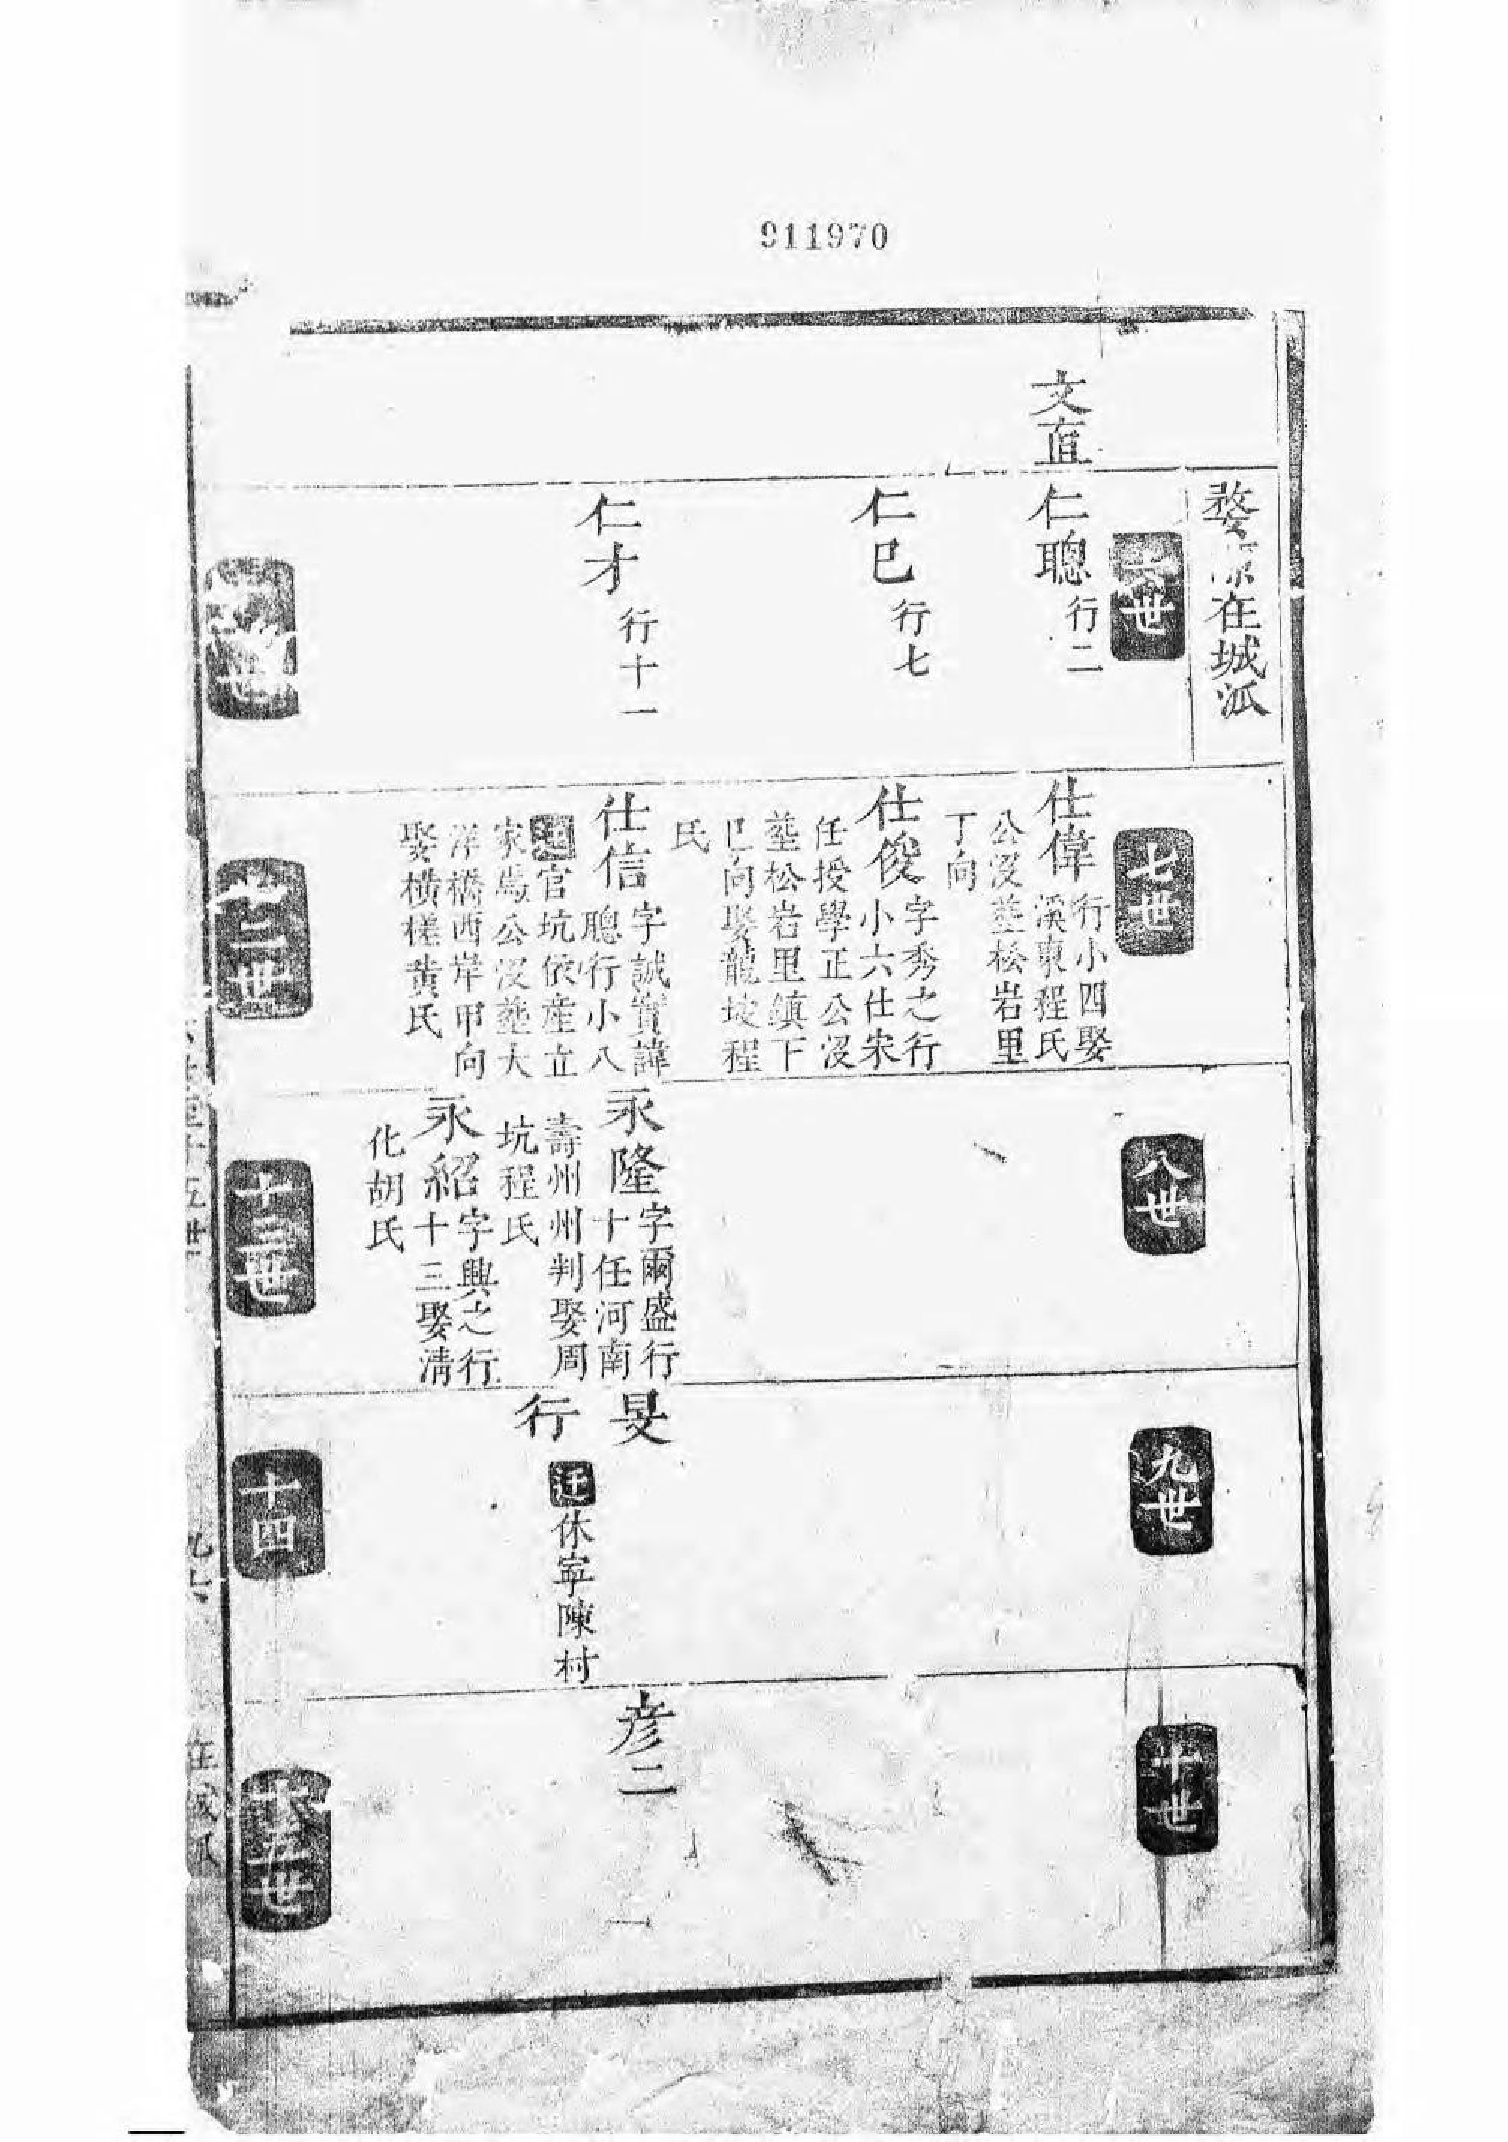 911970
婺源在城派
文直
六世
仁聰
行二
仁巳
行七
仁才
行十一
七世
仕偉
行小四娶
溪東程氏
公沒塟松岩里
丁向
仕俊
字秀之行
小六仕宋
任授學正公沒
塟松岩里鎮下
巳向娶龍坡程
氏
仕信
字誠實諱
聰行小八
官坑依産立
家焉公沒塟大
洋橋西岸甲向
娶橫槎黃氏
八世
永隆
字爾盛行
十任河南
壽州州判娶周
坑程氏
永紹
字興之行
十三娶清
化胡氏
九世
旻
行
迁休寧陳村
十世
彦二
世
十二世
十三世
十四
十五世
在城派